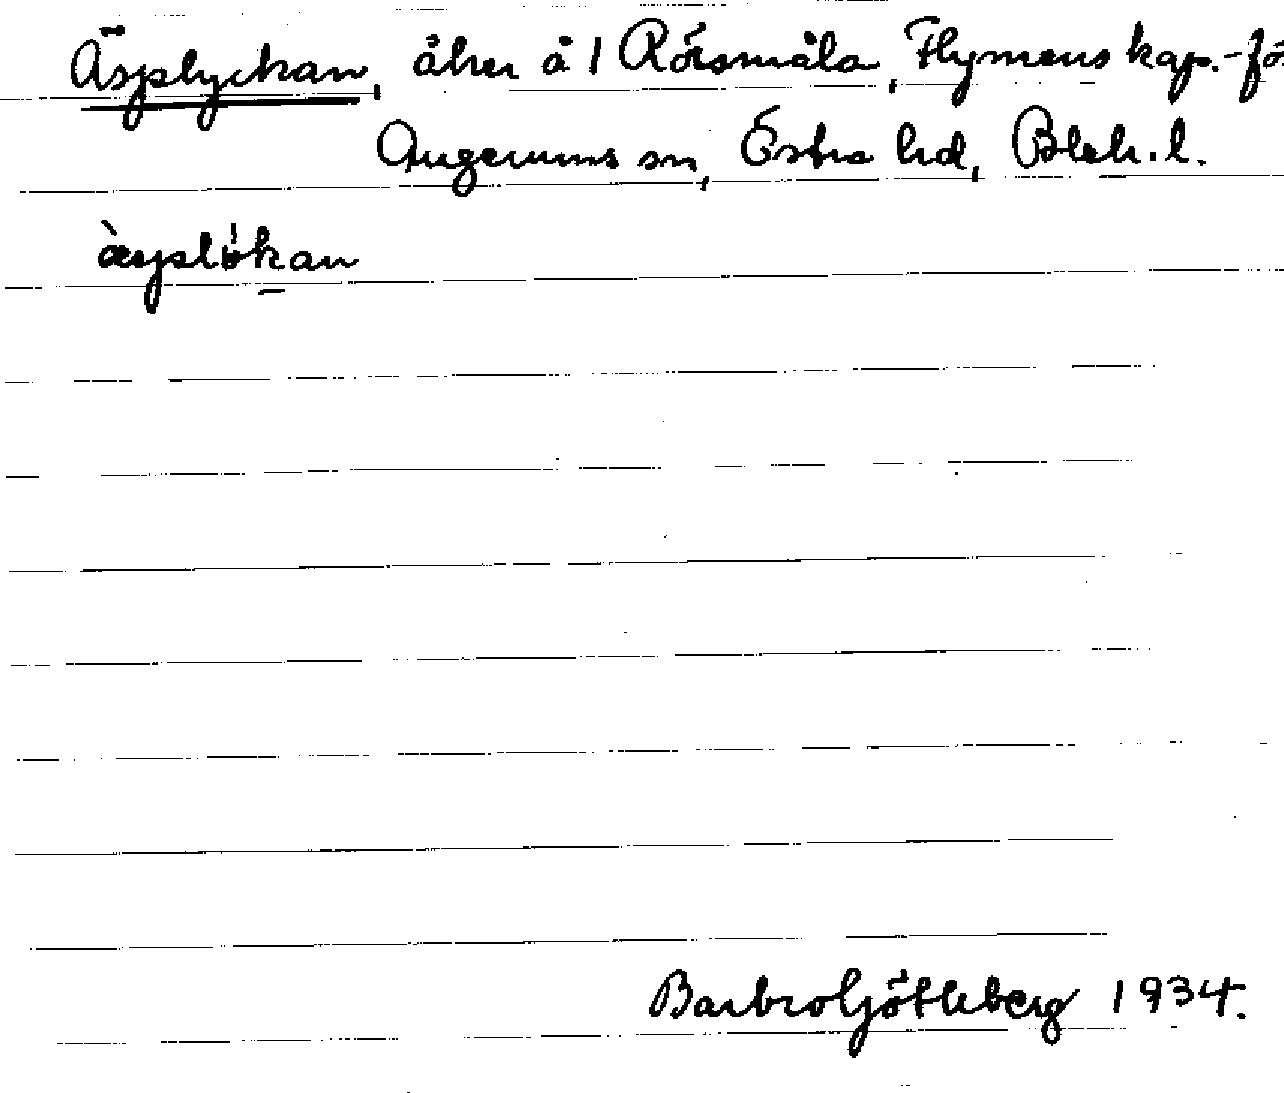 Äsplyckan, åker å 1 Rörsmåla, Flymens kap.-fö
Augerums sn, Östra hd, Blek. l.
àsplökan
Barbro Götleberg 1934.